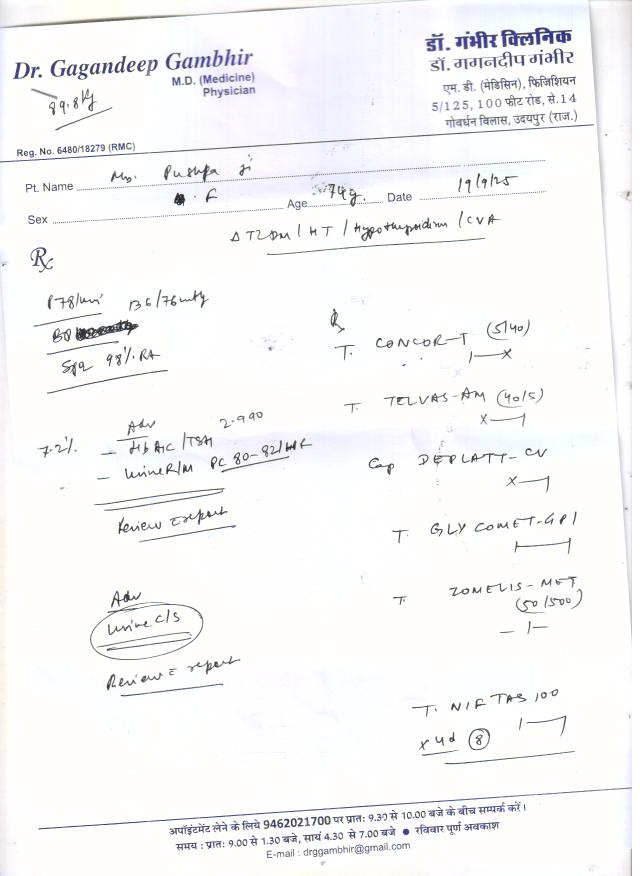 Dr. Gagandeep Gambhir
M.D. (Medicine)
Physician
डॉ. गंभीर क्लिनिक
डॉ. गगनदीप गंभीर
एम. डी. (मेडिसिन), फिजिशियन
5/125, 100 फीट रोड, से.14
गोवर्धन विलास, उदयपुर (राज.)
89.8 Kg
Reg. No. 6480/18279 (RMC)
Pt. Name Mrs. Pushpa Ji
Sex F Age 74y. Date 19/9/25
Δ T2DM / HT / Hypothyroidism / CVA
Rx
P 78/min 136/76 mmHg
BP
SpO2 98% RA
Rx
T. CONCOR-T (5/40)
1—x
T. TELVAS-AM (40/5)
x—1
Adv
7.2% – HbA1C/TSH 2.990
– Urine R/M PC 80-82/HPF
Review c report
Cap DEPLATT-CV
x—1
T. GLYCOMET-GP1
1—1
Adv
Urine C/S
Review c report
T. ZOMELIS-MET
(50/500)
–1–
T. NIFTAS 100
1—1
x 4d (8)
अपॉइंटमेंट लेने के लिये 9462021700 पर प्रातः 9.30 से 10.00 बजे के बीच सम्पर्क करें।
समय : प्रातः 9.00 से 1.30 बजे, सायं 4.30 से 7.00 बजे ● रविवार पूर्ण अवकाश
E-mail : drggambhir@gmail.com